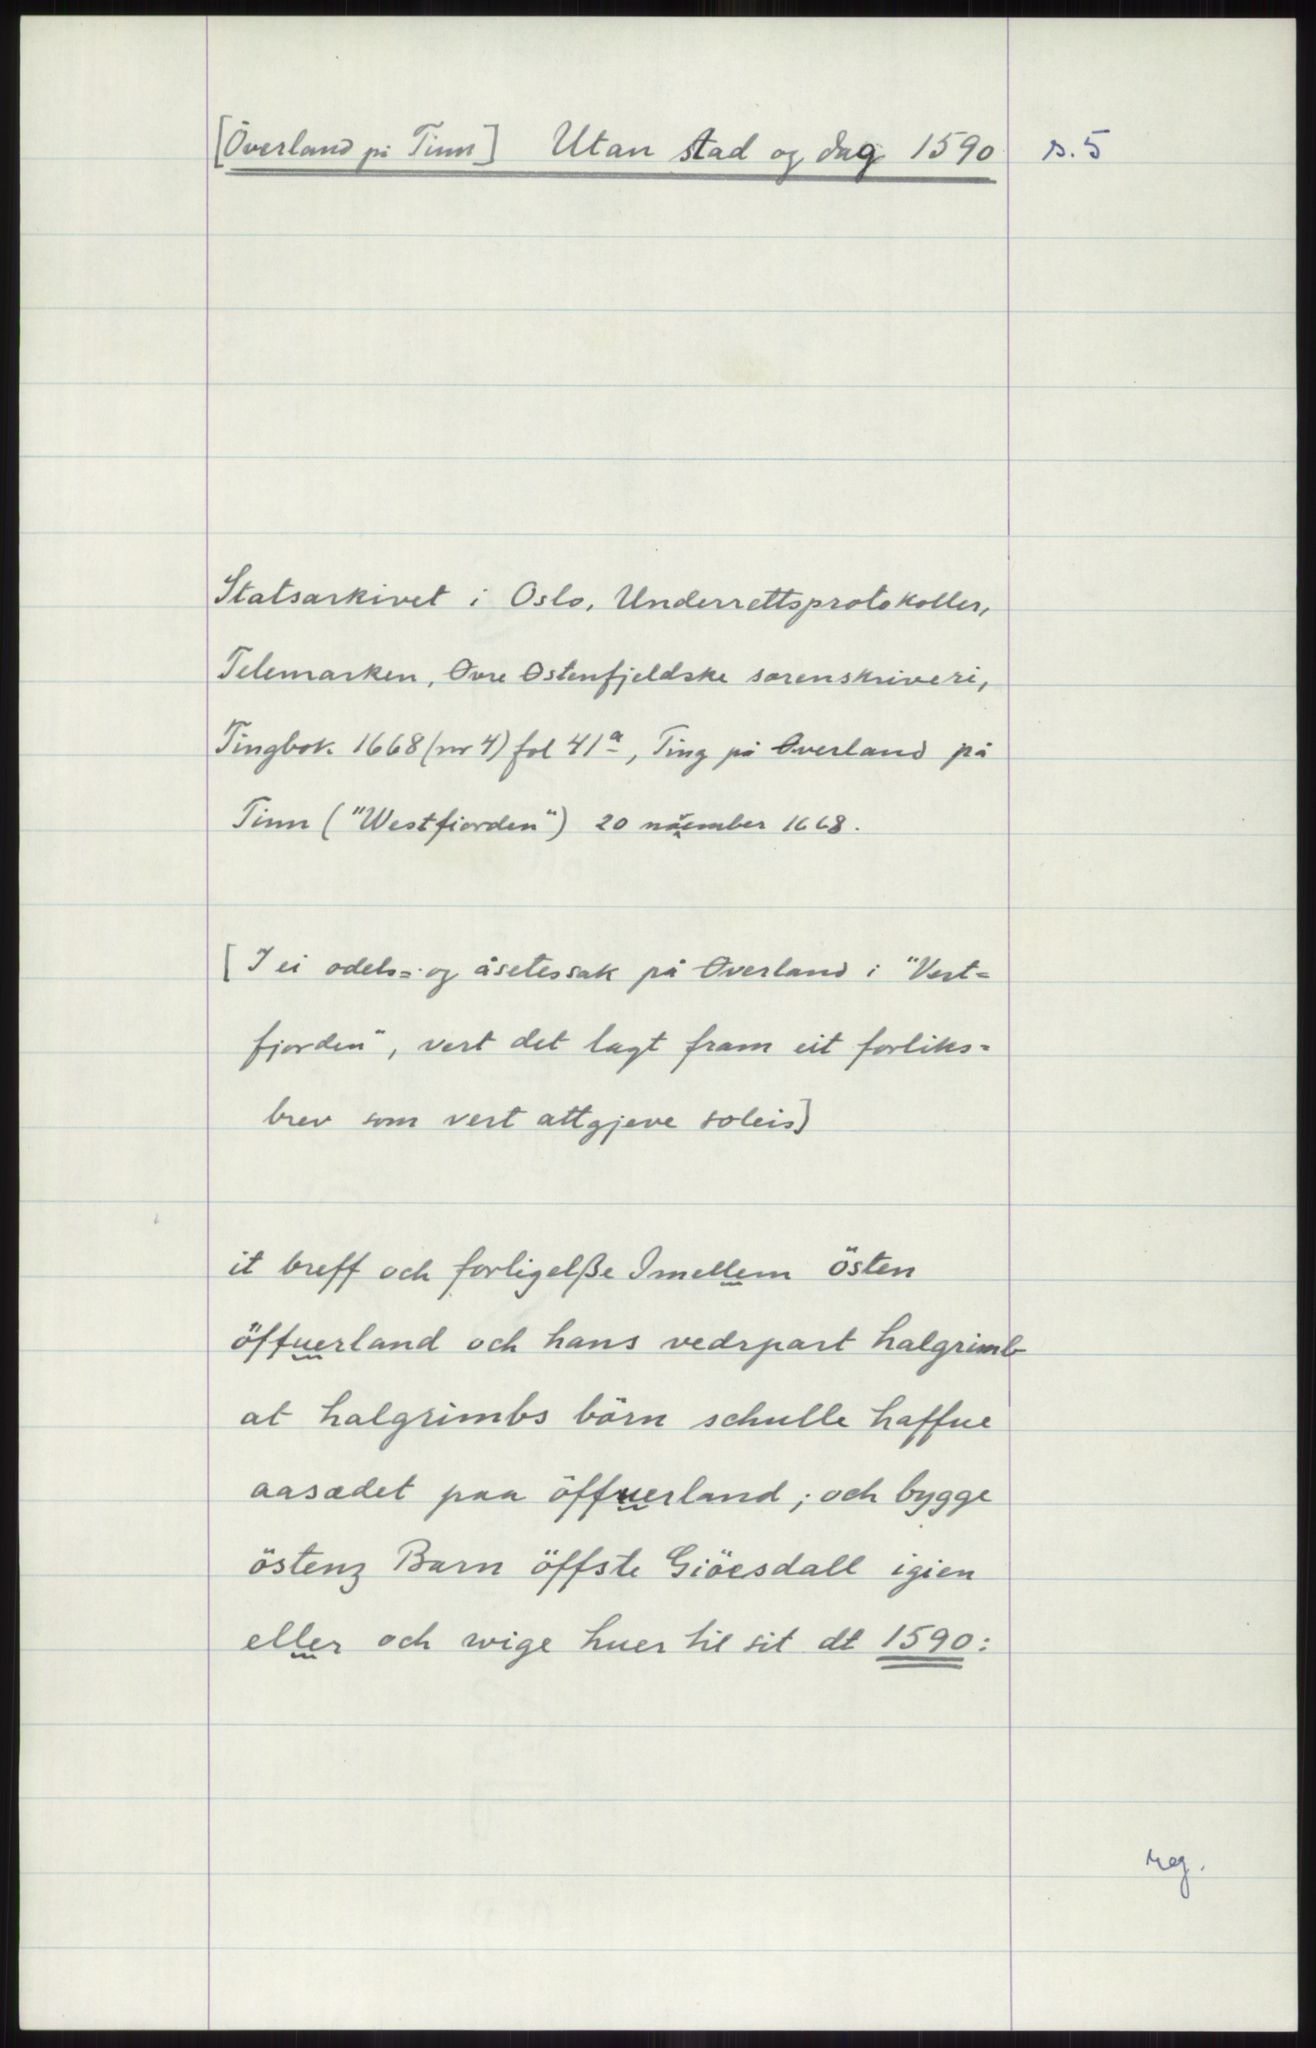 [Överland på Tinn] Utan stad og dag 1590 s. 5
Statsarkivet i Oslo, Underrettsprotokoller,
Telemarken, Øvre Østenfjeldske sorenskriveri,
Tingbok 1668 (nr 4) fol 41ª, Ting på Øverland på
Tinn ("Westfiorden") 20 november 1668.
[I ei odels= og åsetessak på Øverland i "Vest=
fjorden", vert det lagt fram eit forliks=
brev som vert attgjeve soleis]
it breff och forligelße Imellem östen
öffuerland och hans vedrpart halgrimb
at halgrimbs börn schulle haffue
aasædet paa öffuerland; och bygge
östenz Barn öffste Giöesdall igien
eller och wige huer til sit dt 1590:
reg.